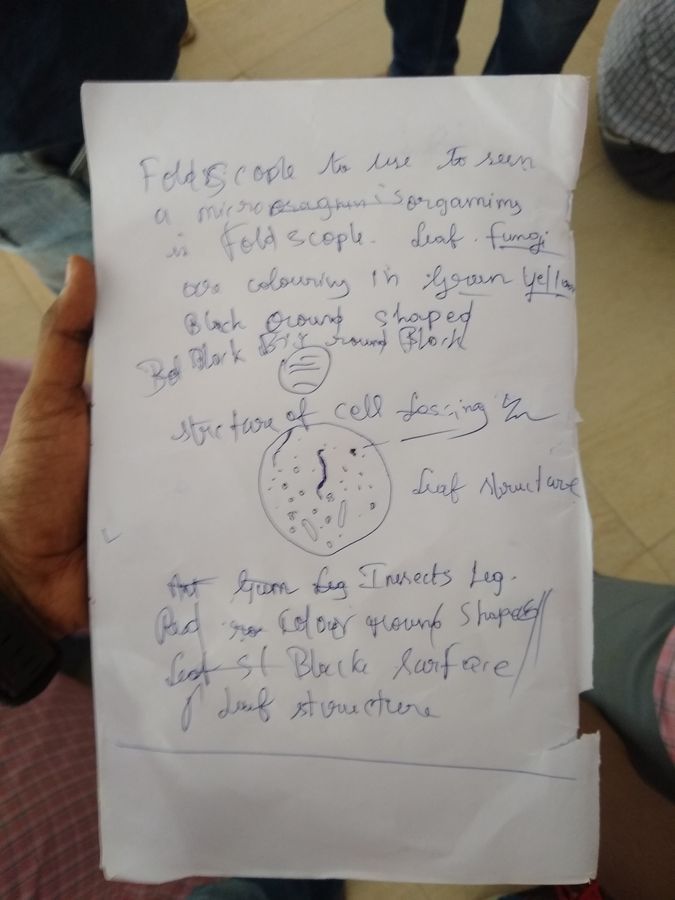 Foldscople to use to seen
a micro isorgamims
is Foldscope. Leaf fungi
are colouring in Green Yellow
Black oround shaped
Black round Block
stricture of cell
Leaf structure
Leg Insects Leg.
Red Colour oround Shapes
Leaf St Black Surface
Leaf structure